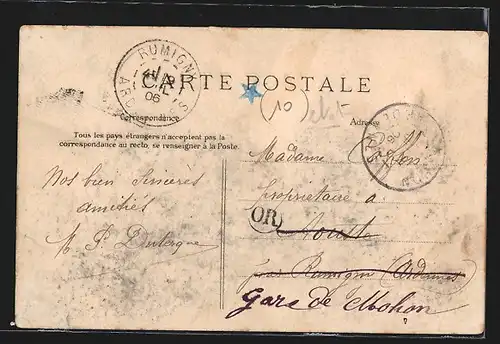 RUMIGNY
06
CARTE POSTALE
(10)
Correspondance
Adresse
Tous les pays étrangers n'acceptent pas la
correspondance au recto, se renseigner à la Poste.
Nos bien sincères
amitiés
Madame
Propriétaire à
OR
Aouste
par Rumigny (Ardennes)
Gare de Mohon